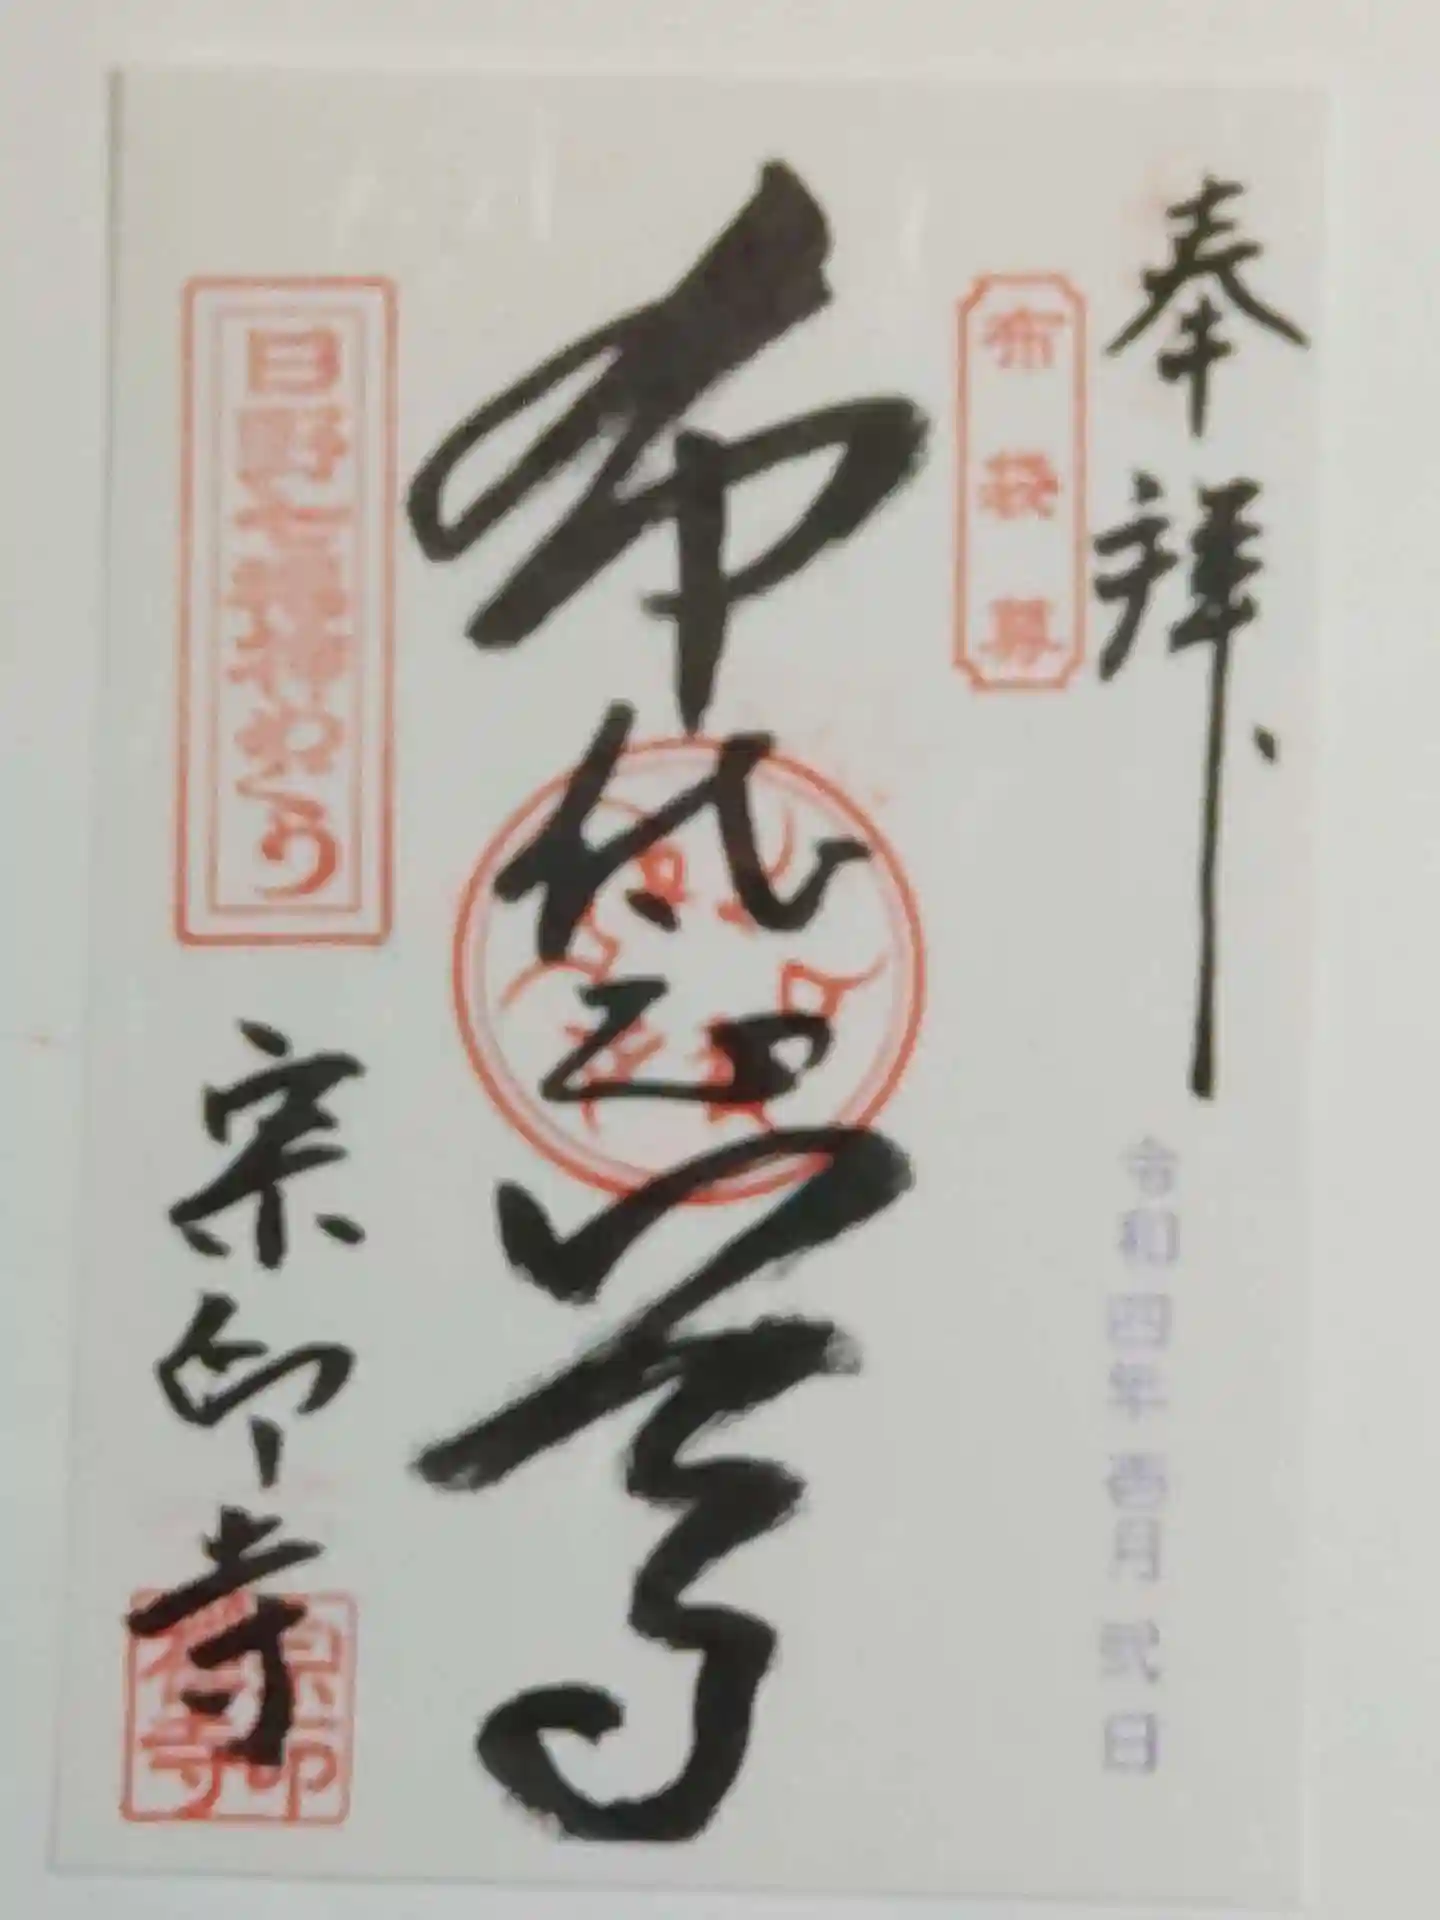 奉拝
令和四年壱月弐日
布袋尊
布袋尊
日野七福神めぐり
宗印寺
宗印寺